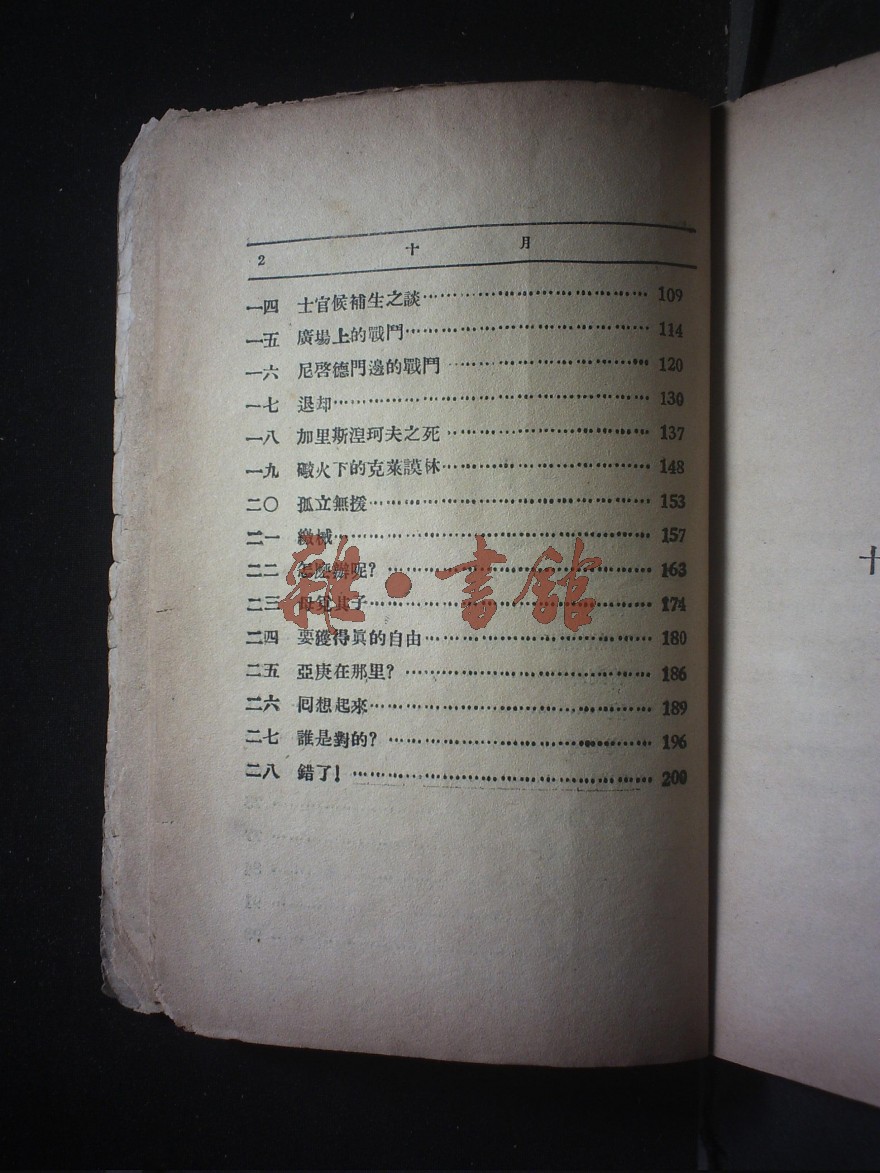 2 十月
一四 士官候補生之談 109
一五 廣場上的戰鬥 114
一六 尼啓德門邊的戰鬥 120
一七 退却 130
一八 加里斯涅珂夫之死 137
一九 礮火下的克萊謨林 148
二〇 孤立無援 153
二一 繳械 157
二二 怎麼辦呢? 163
二三 母覓其子 174
二四 要獲得眞的自由 180
二五 亞庚在那里? 186
二六 回想起來 189
二七 誰是對的? 196
二八 錯了! 200
雜·書館
十